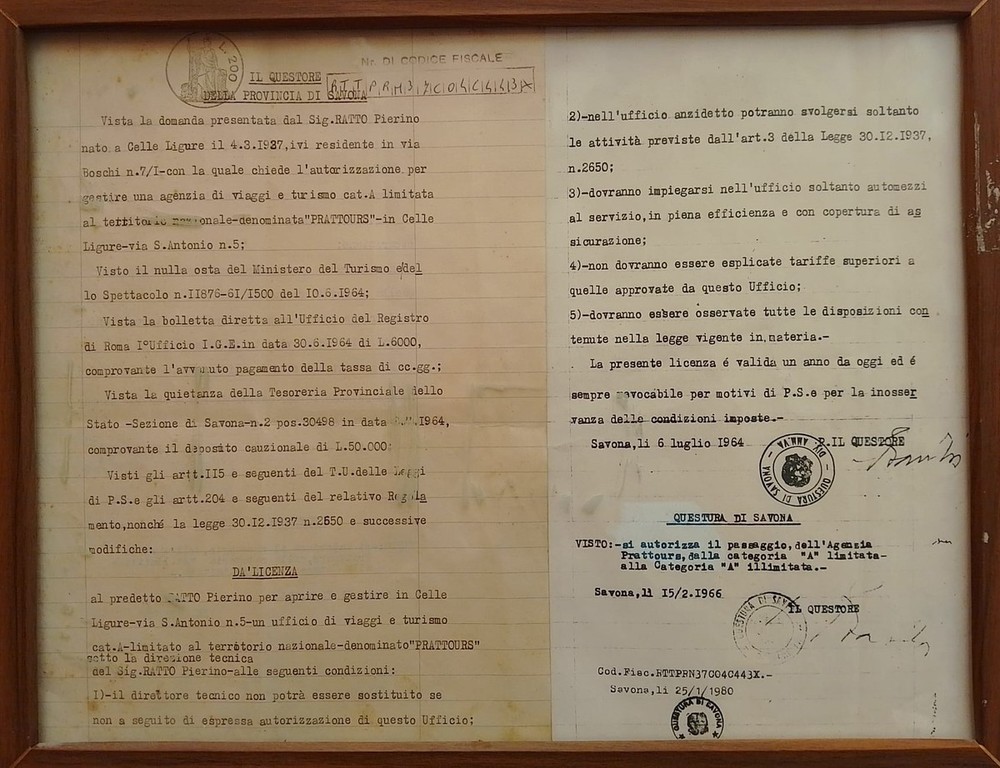 L.200
Nr. DI CODICE FISCALE
IL QUESTORE
DELLA PROVINCIA DI SAVONA
Vista la domanda presentata dal Sig.RATTO Pierino
nato a Celle Ligure il 4.3.1937,ivi residente in via
Boschi n.7/I-con la quale chiede l'autorizzazione per
gestire una agenzia di viaggi e turismo cat.A limitata
al territorio nazionale-denominata"PRATTOURS"-in Celle
Ligure-via S.Antonio n.5;
Visto il nulla osta del Ministero del Turismo e del
lo Spettacolo n.II876-6I/I500 del I0.6.I964;
Vista la bolletta diretta all'Ufficio del Registro
di Roma I°Ufficio I.G.E.in data 30.6.I964 di L.6000,
comprovante l'avvenuto pagamento della tassa di cc.gg.;
Vista la quietanza della Tesoreria Provinciale dello
Stato -Sezione di Savona-n.2 pos.30498 in data I964,
comprovante il deposito cauzionale di L.50.000:
Visti gli artt.II5 e seguenti del T.U.delle Leggi
di P.S.e gli artt.204 e seguenti del relativo Regola
mento,nonché la legge 30.I2.I937 n.2650 e successive
modifiche:
DA'LICENZA
al predetto RATTO Pierino per aprire e gestire in Celle
Ligure-via S.Antonio n.5-un ufficio di viaggi e turismo
cat.A-limitato al territorio nazionale-denominato"PRATTOURS"
sotto la direzione tecnica
del Sig.RATTO Pierino-alle seguenti condizioni:
I)-il direttore tecnico non potrà essere sostituito se
non a seguito di espressa autorizzazione di questo Ufficio;
2)-nell'ufficio anzidetto potranno svolgersi soltanto
le attività previste dall'art.3 della Legge 30.I2.I937,
n.2650;
3)-dovranno impiegarsi nell'ufficio soltanto automezzi
al servizio,in piena efficienza e con copertura di as
sicurazione;
4)-non dovranno essere esplicate tariffe superiori a
quelle approvate da questo Ufficio;
5)-dovranno essere osservate tutte le disposizioni con
tenute nella legge vigente in,materia.-
La presente licenza é valida un anno da oggi ed é
sempre revocabile per motivi di P.S.e per la inosser
vanza delle condizioni imposte.-
Savona,li 6 luglio I964 P.IL QUESTORE
QUESTURA DI SAVONA - DIV. AMM.VA -
QUESTURA DI SAVONA
VISTO:-si autorizza il passaggio,dell'Agenzia
Prattours,dalla categoria "A" limitata-
alla Categoria "A" illimitata.-
Savona,li 15/2.1966
IL QUESTORE
QUESTURA DI SAVONA
Cod.Fisc.RTTPRN37C04C443X.-
Savona,li 25/1/1980
QUESTURA DI SAVONA